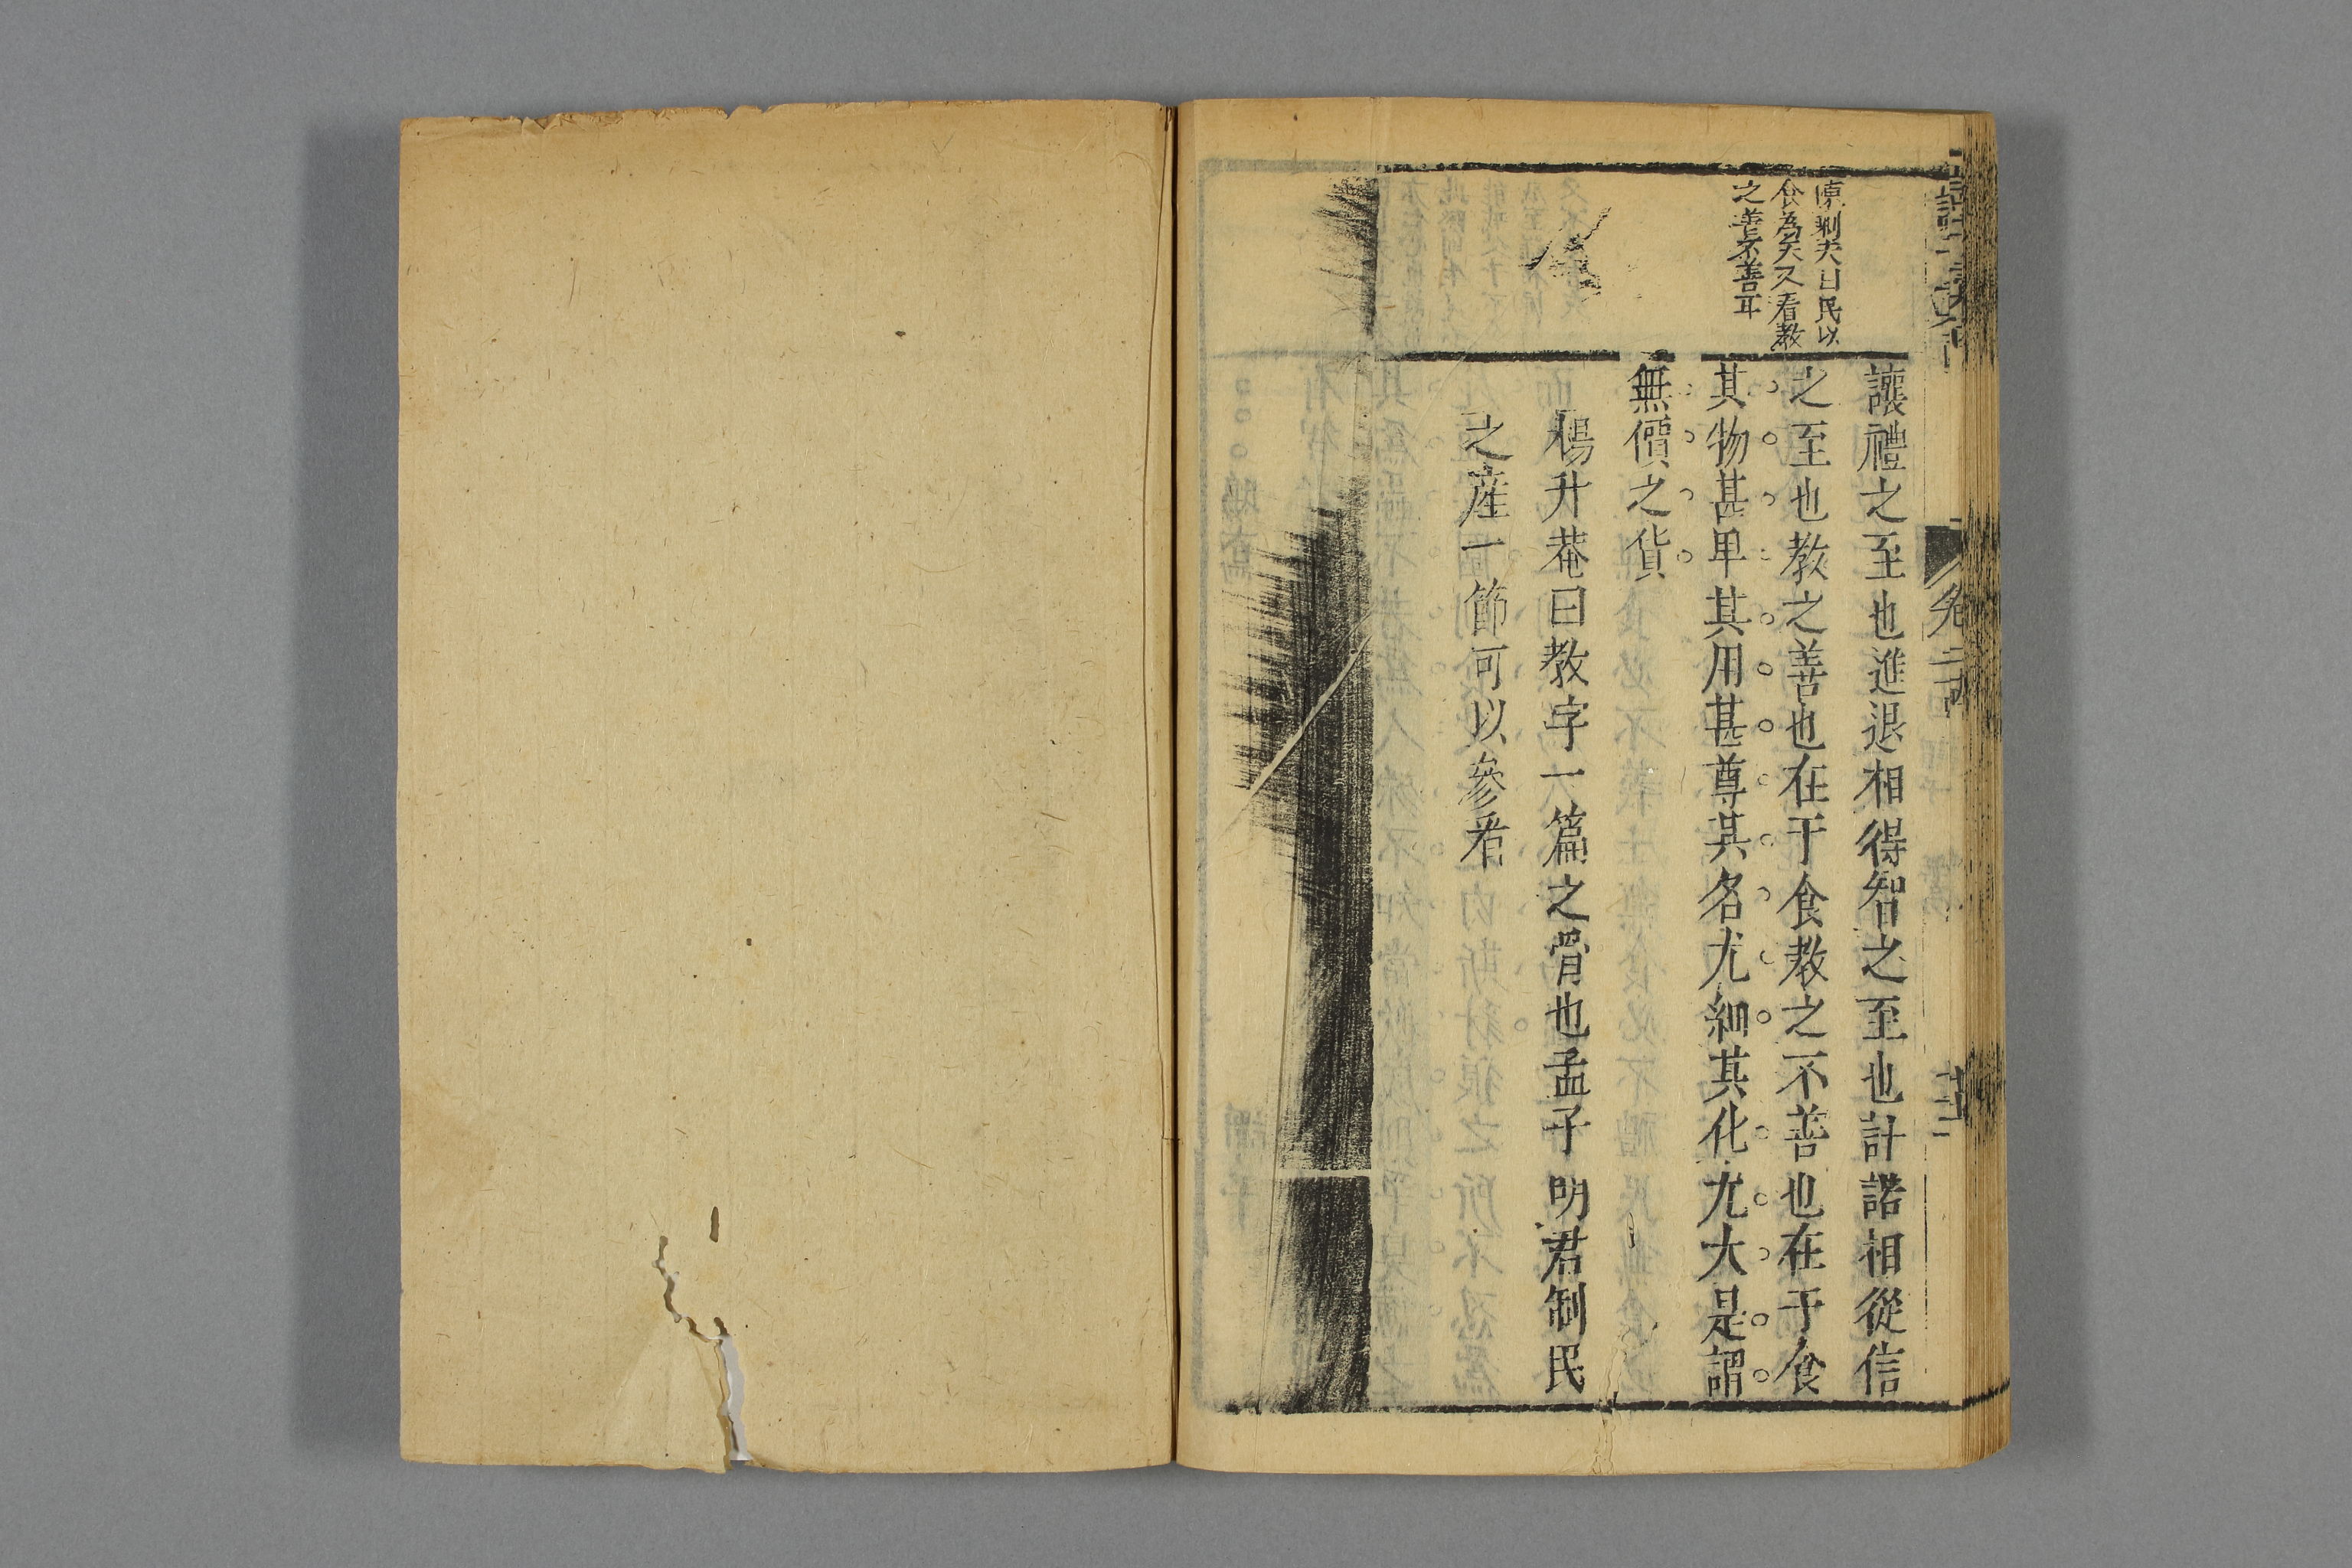 陳剩夫曰民以
食為天又看教
之善不善耳
讓禮之至也進退相得智之至也計諾相從信
之至也教之善也在于食教之不善也在于食
其物甚卑其用甚尊其名尤細其化尤大是謂
無價之貨
楊升菴曰教字一大篇之骨也孟子明君制民
之產一節可以參看